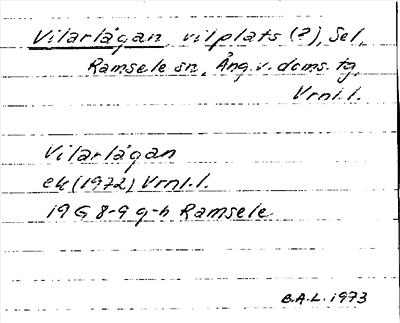 Vilarlågan, vilplats (?), Sel,
Ramsele sn, Ång.v. doms. tg,
Vrnl.l.
Vilarlågan
ek (1972) Vrnl.l.
19 G 8-9 g-h Ramsele
B.A.L. 1973